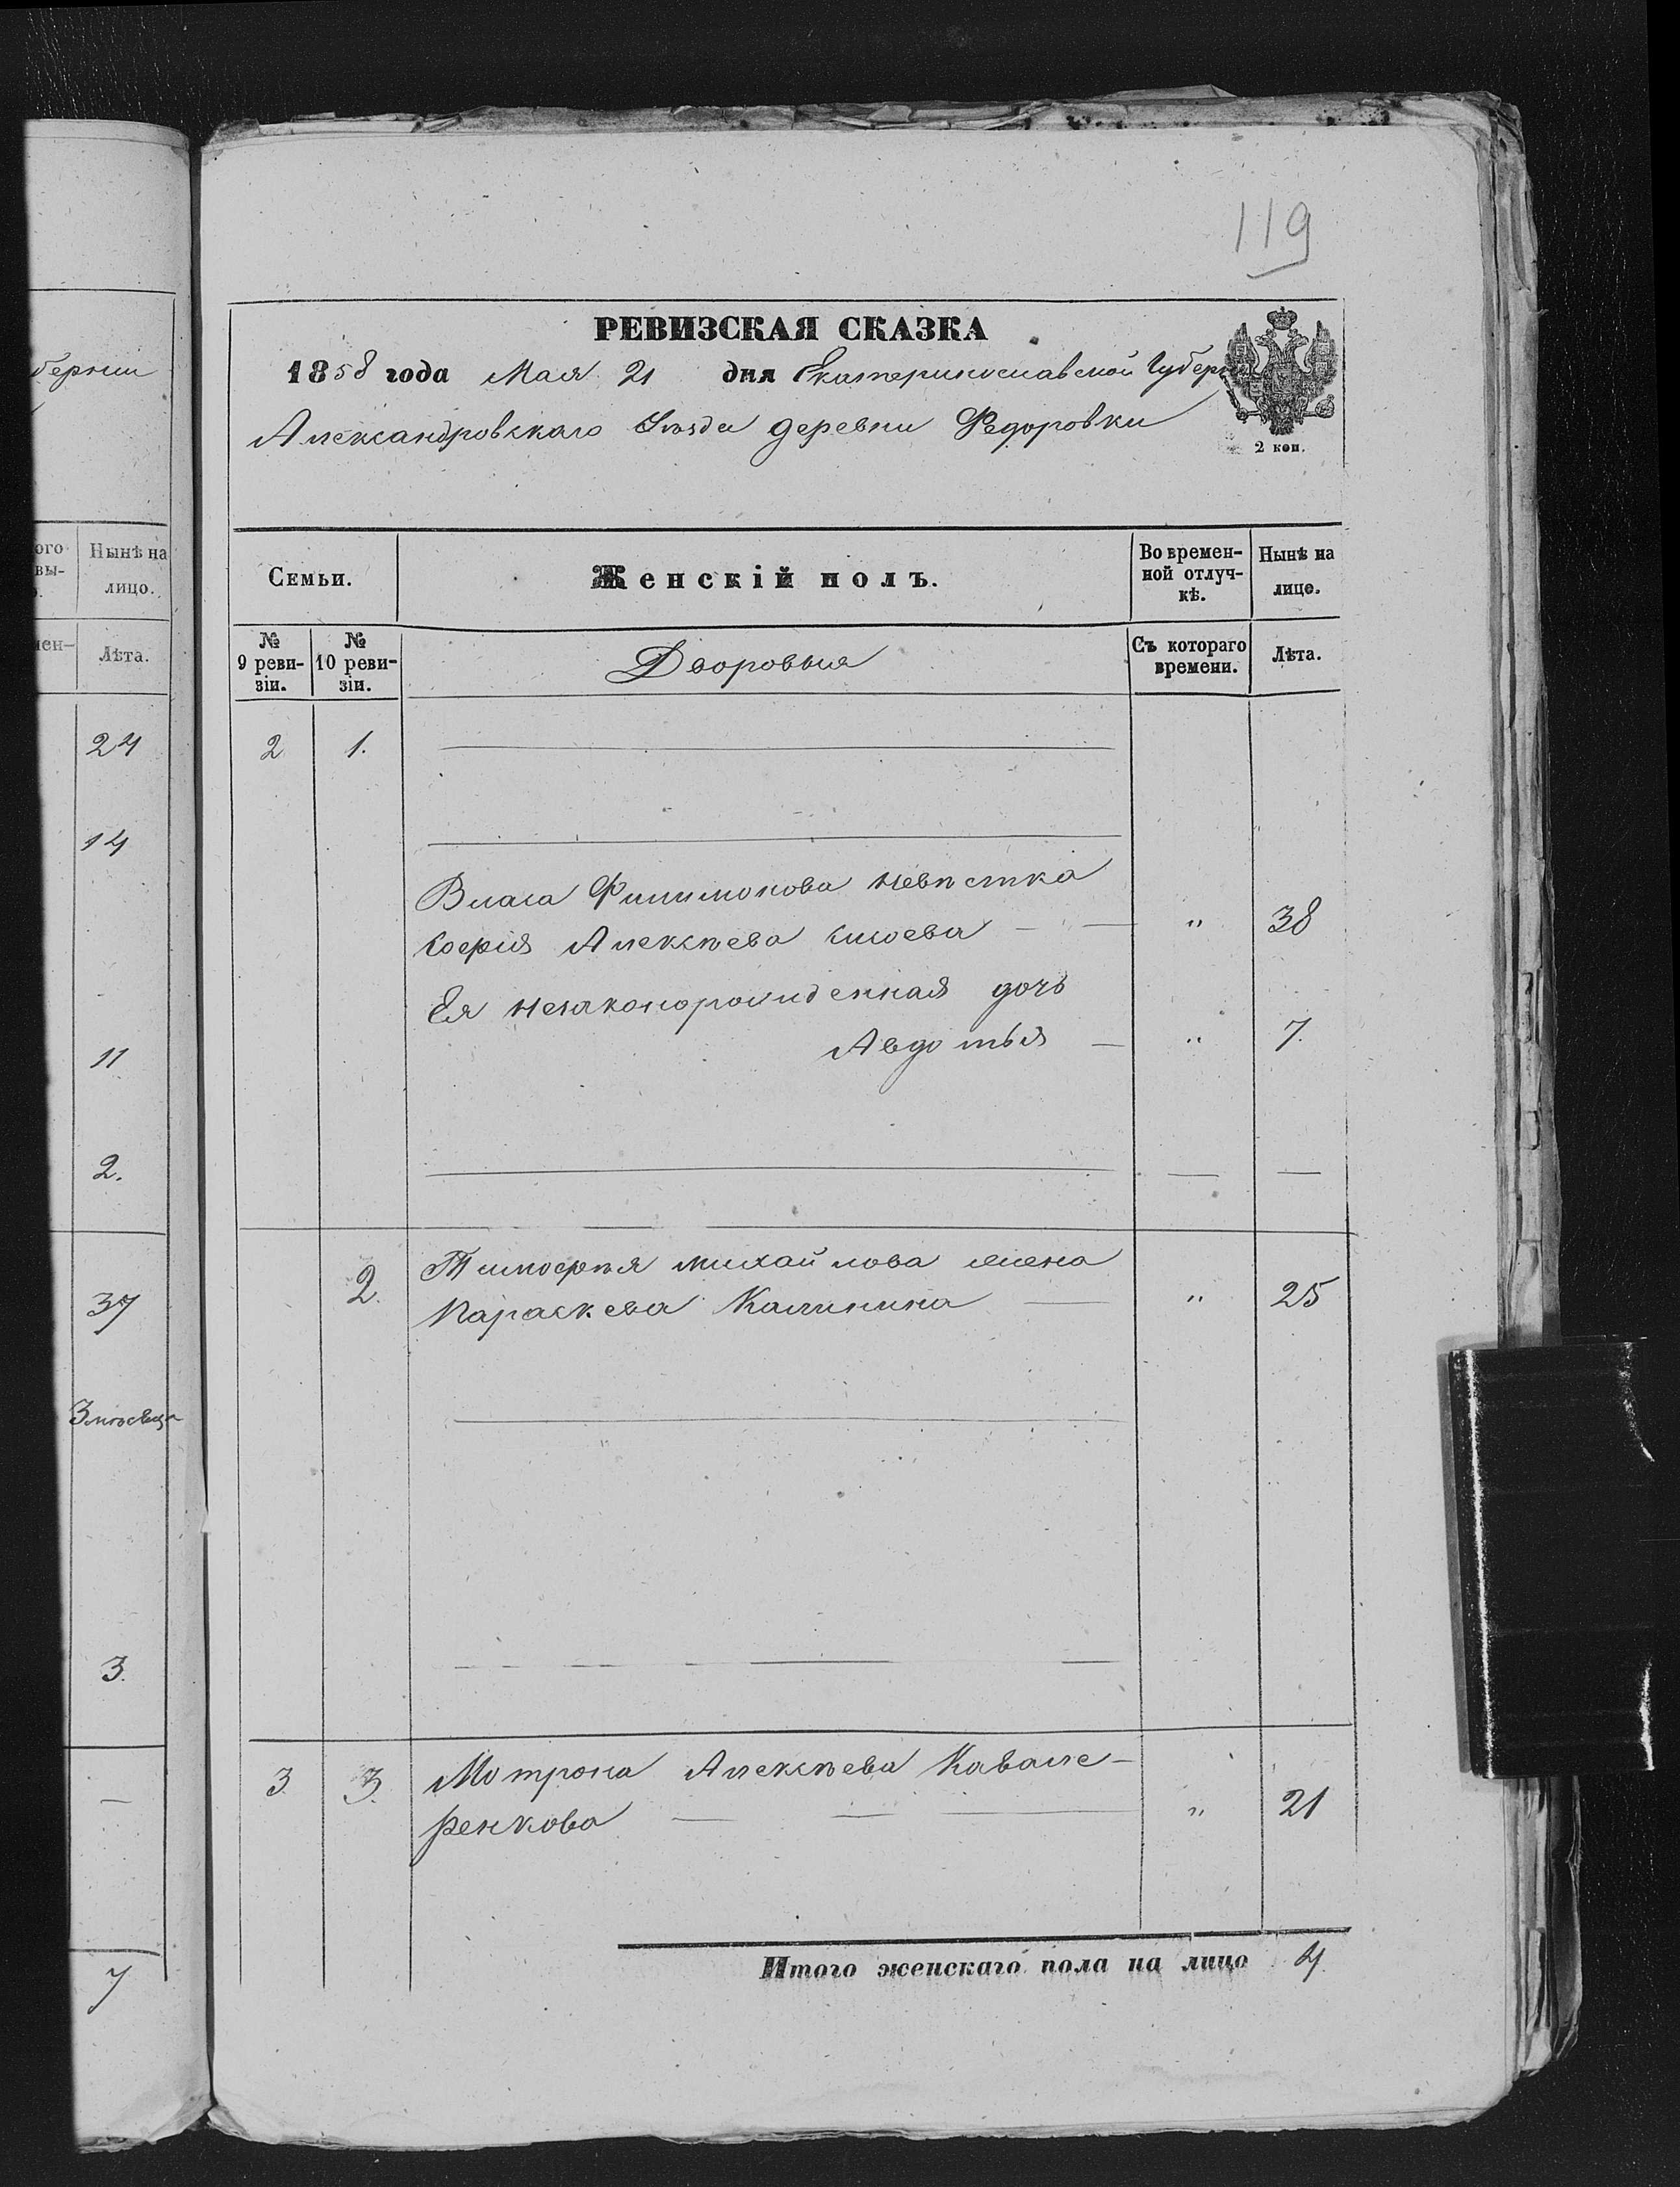 119
РЕВИЗСКАЯ СКАЗКА
1858 года Мая 21 дня Екатеринославской Губер
Александровскаго Уѣзда деревни Федоровки
2 коп.
Семьи.
Женскій полъ.
Во времен-
ной отлуч-
кѣ.
Нынѣ на
лице.
№
9 реви-
зіи.
№
10 реви-
зіи.
Дворовыя
Съ котораго
времени.
Лѣта.
2 1.
Власа Филимонова невѣстка
Софія Алексѣева " 38
Ея незаконорожденная дочь
Авдотья " 7.
2. Тимофѣя Михайлова жена
Параскева Калинина " 25
3. 3. Мотрона Алексѣева Кавале-
ренкова " 21
Итого женскаго пола на лицо 4.
берніи
ого
вы-
Нынѣ на
лицо.
мен-
Лѣта.
24
14
11
2.
37
3 мѣсяца
3.
7